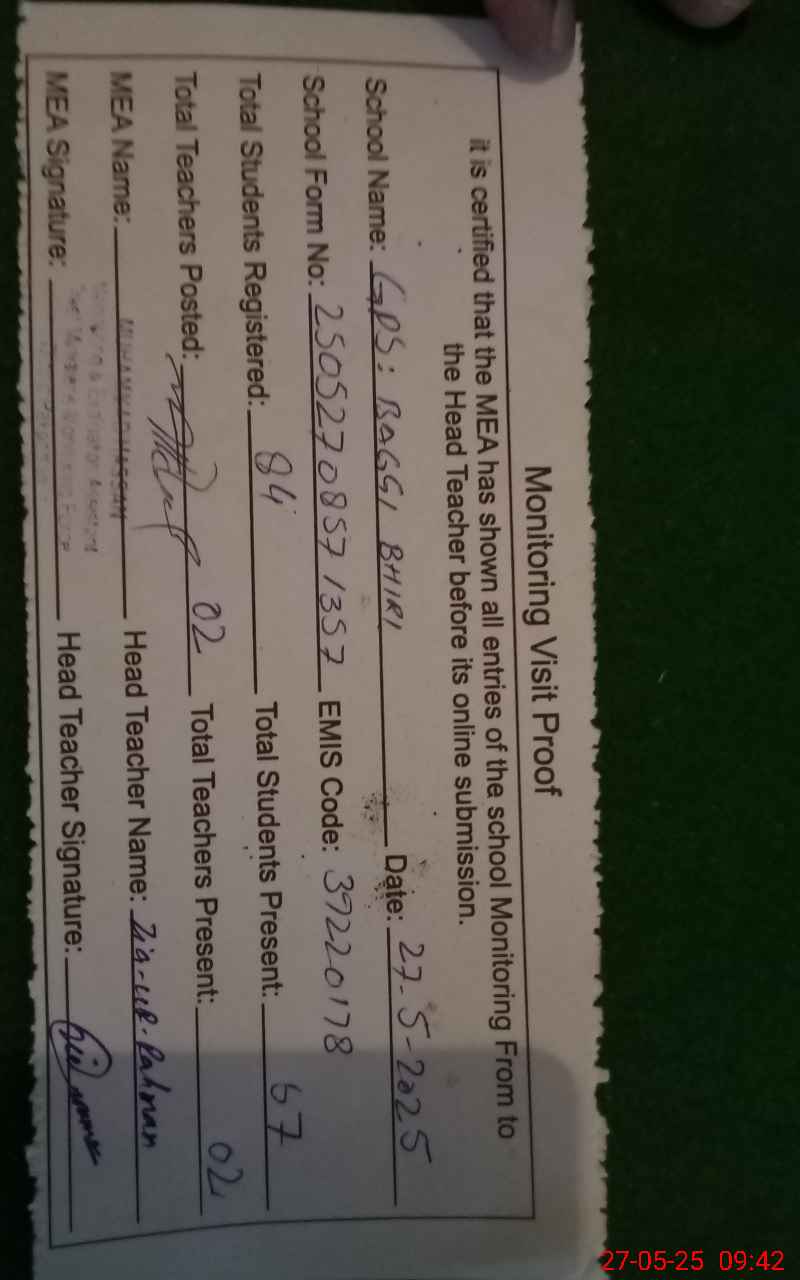 Monitoring Visit Proof
it is certified that the MEA has shown all entries of the school Monitoring From to
the Head Teacher before its online submission.
School Name: GPS: BAGGI BHIRI Date: 27-5-2025
School Form No: 2505270857 1357 EMIS Code: 39220178
Total Students Registered: 84 Total Students Present: 67
Total Teachers Posted: 02 Total Teachers Present: 02
MEA Name: MUHAMMAD HASSAN Head Teacher Name: Zia-ur-Rahman
MEA Signature: Head Teacher Signature:
Monitoring & Evaluation Assistant
27-05-25 09:42